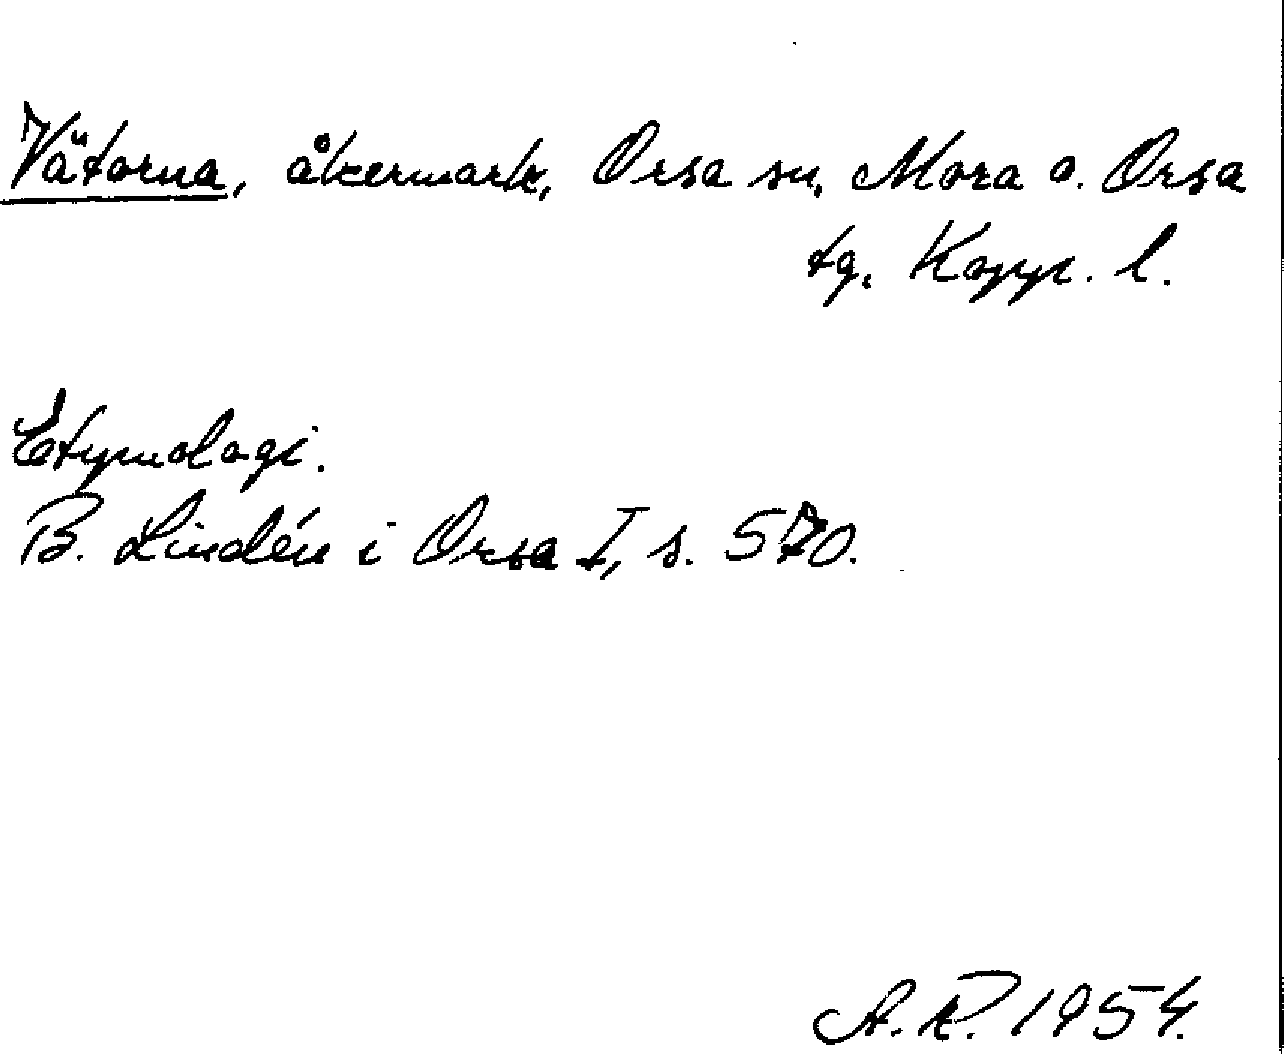 Vätorna, åkermark, Orsa sn, Mora o. Orsa
tg, Kopp. l.
Etymologi.
B. Lindén i Orsa I, s. 570.
A.R. 1954.